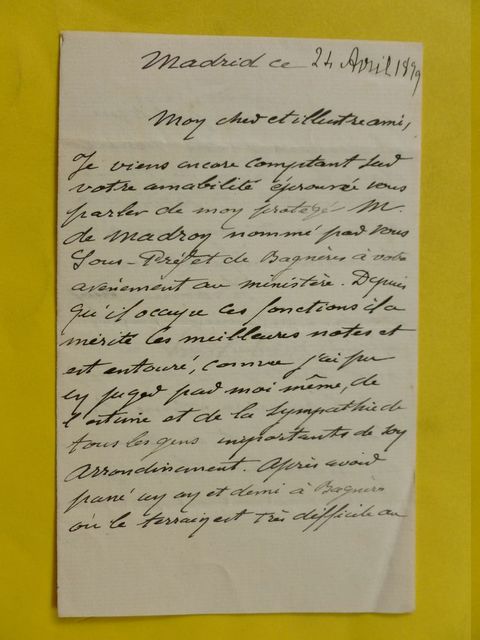 Madrid ce 24 Avril 1899
Mon cher et illustre ami,
Je viens encore comptant sur
votre amabilité éprouvée vous
parler de mon protégé M.
de Madron nommé par vous
Sous-Préfet de Bagnères à votre
avènement au ministère. Depuis
qu'il occupe ces fonctions il a
mérité les meilleures notes et
est entouré, comme j'ai pu
en juger par moi même, de
l'estime et de la sympathie de
tous les gens importants de son
Arrondissement. Après avoir
passé un an et demi à Bagnères
où le terrain est très difficile au